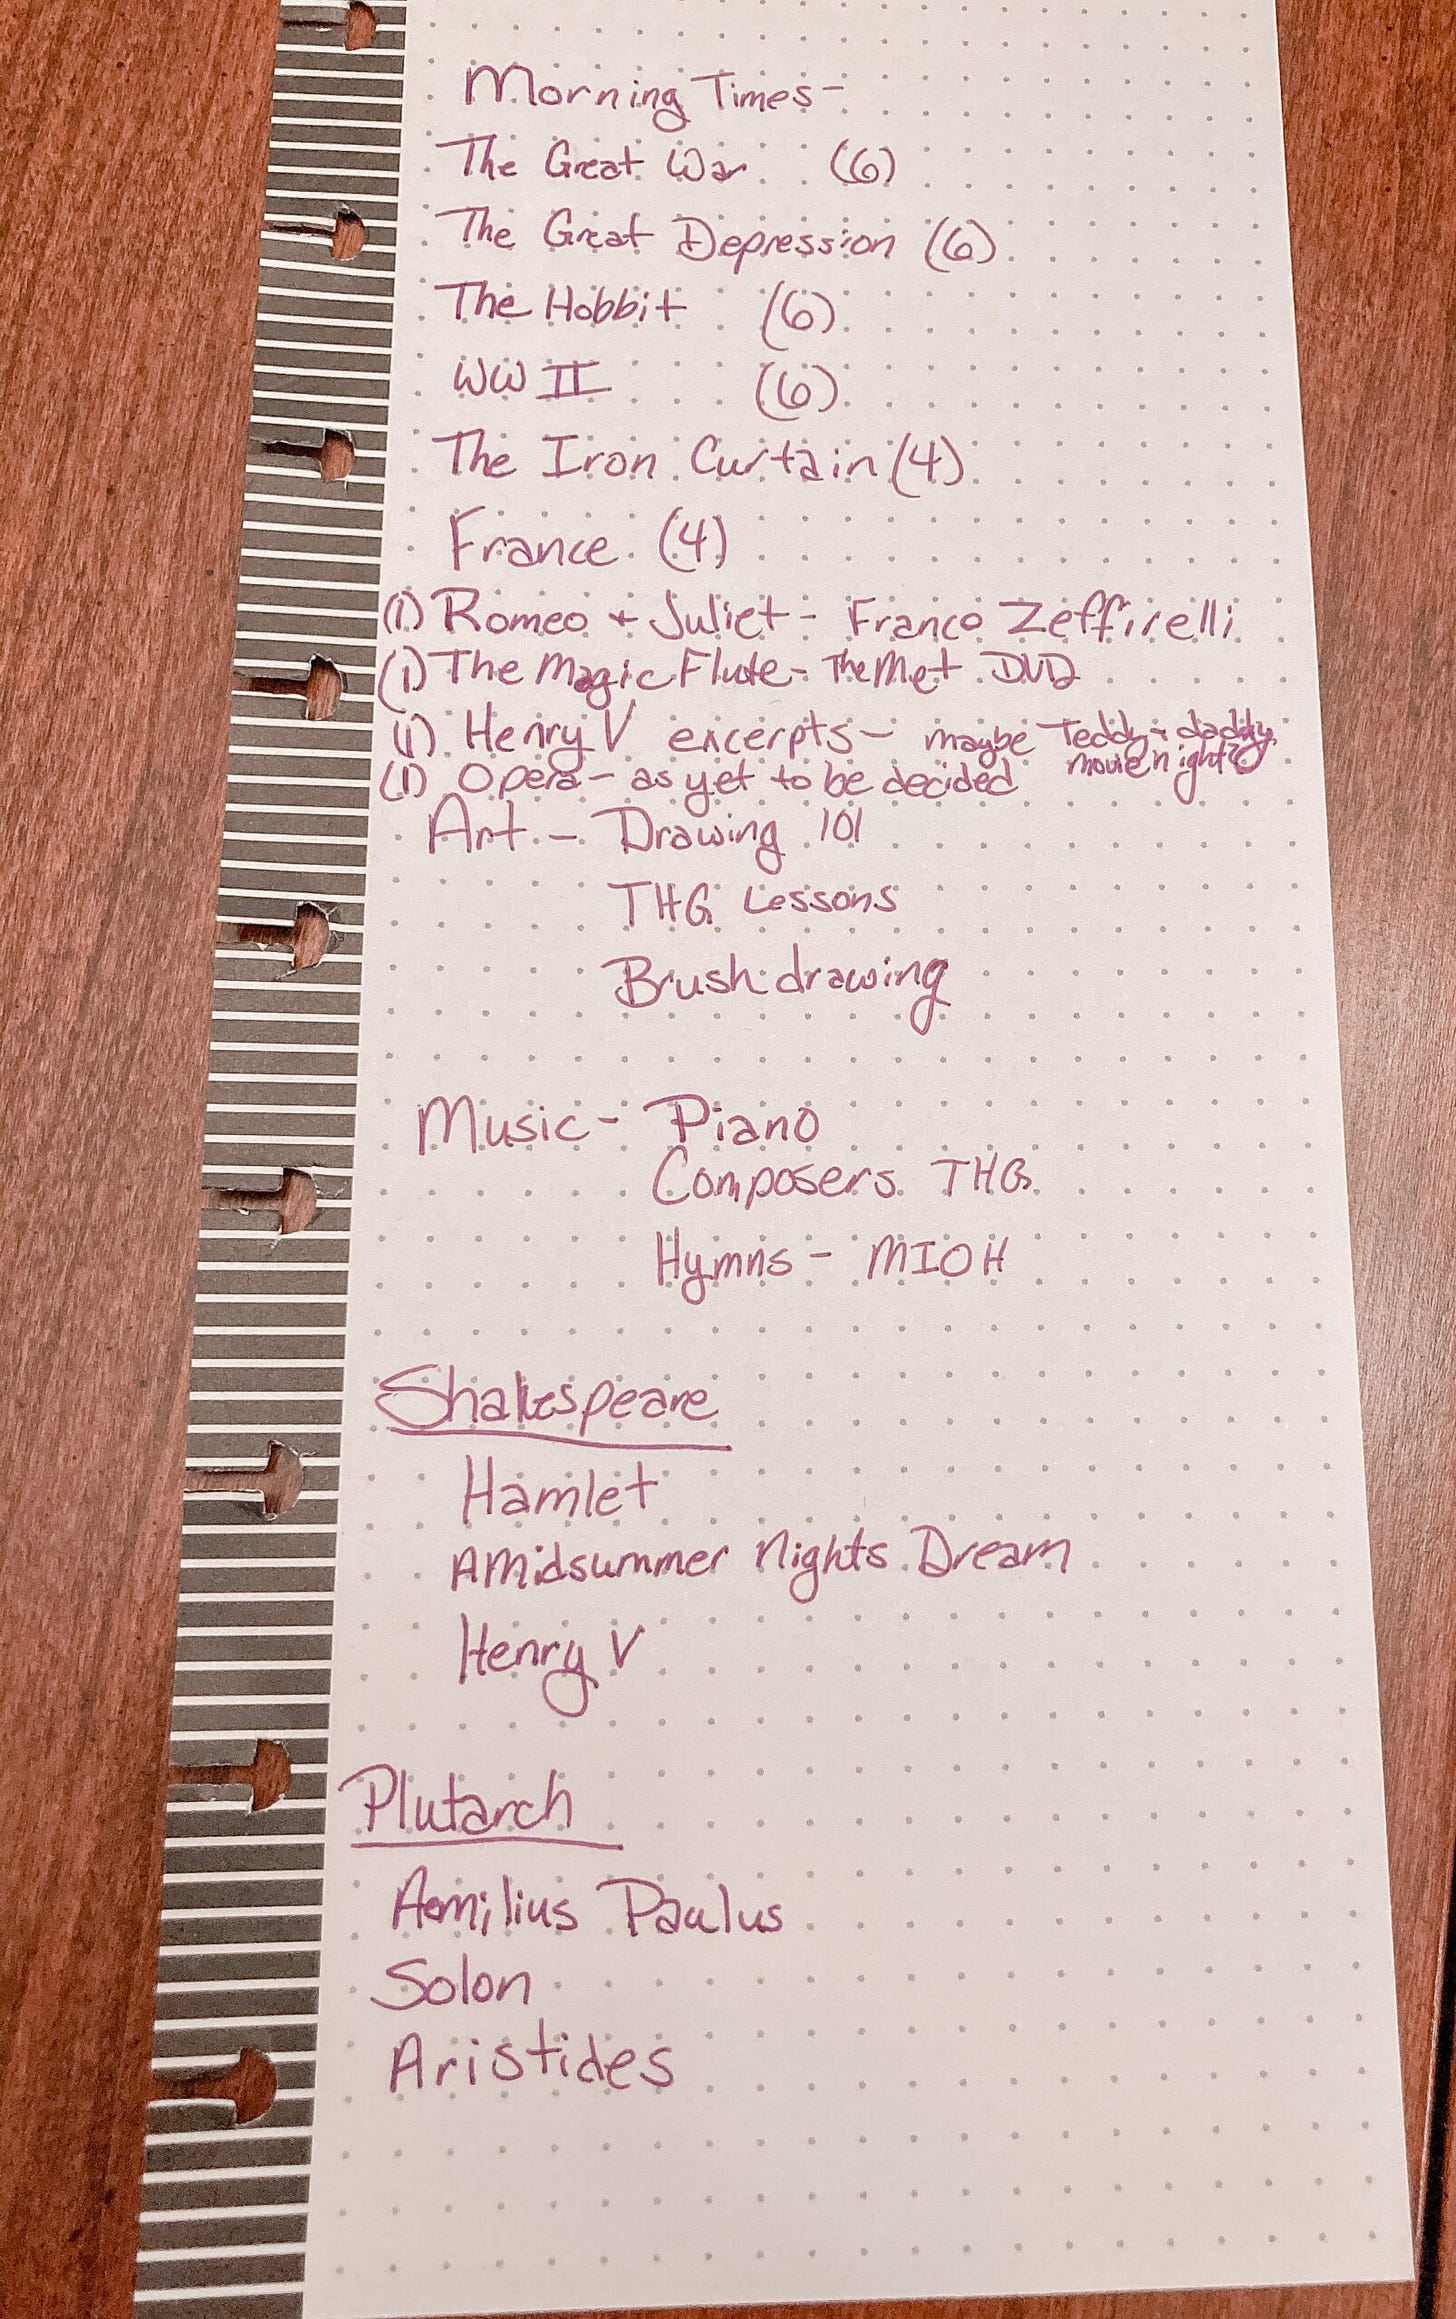 Morning Times-
The Great War (6)
The Great Depression (6)
The Hobbit (6)
WW II (6)
The Iron Curtain (4)
France (4)
(1) Romeo + Juliet - Franco Zeffirelli
(1) The Magic Flute - The Met DVD
(1) Henry V excerpts - maybe Teddy + daddy
movie night
(1) Opera - as yet to be decided
Art - Drawing 101
THG Lessons
Brush drawing
Music - Piano
Composers THG
Hymns - MIOH
Shakespeare
Hamlet
A Midsummer Nights Dream
Henry V
Plutarch
Aemilius Paulus
Solon
Aristides